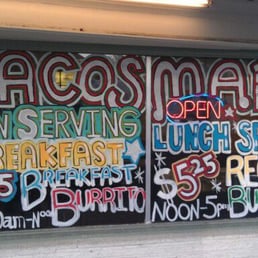 ACOS MA
N SERVING
OPEN
LUNCH SE
REAKFAST
5 BREAKFAST
$5.25 RE
BURRITO
am-Noon
NOON-5pm BU